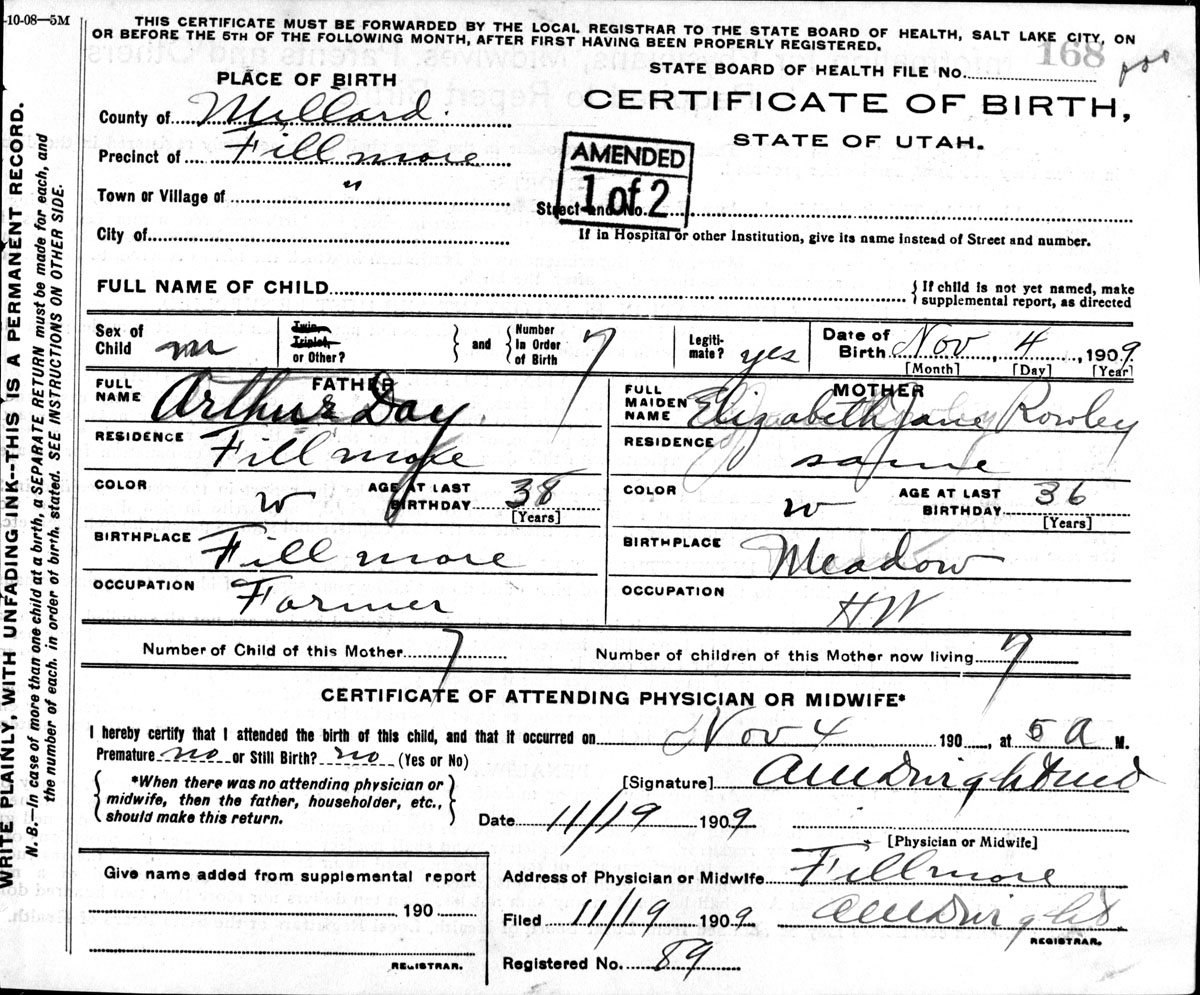 -10-08—5M
THIS CERTIFICATE MUST BE FORWARDED BY THE LOCAL REGISTRAR TO THE STATE BOARD OF HEALTH, SALT LAKE CITY, ON
OR BEFORE THE 5TH OF THE FOLLOWING MONTH, AFTER FIRST HAVING BEEN PROPERLY REGISTERED.
168
PLACE OF BIRTH
STATE BOARD OF HEALTH FILE NO.
CERTIFICATE OF BIRTH,
STATE OF UTAH.
County of Millard
Precinct of Fillmore
AMENDED
1 of 2
Town or Village of "
Street and No.
City of
If in Hospital or other Institution, give its name instead of Street and number.
FULL NAME OF CHILD
{ If child is not yet named, make
supplemental report, as directed
Sex of
Child m
Twin,
Triplet,
or Other?
} and {
Number
In Order
of Birth 7
Legiti-
mate? yes
Date of
Birth Nov, 4, 1909
[Month] [Day] [Year]
FATHER
FULL
NAME Arthur Day
MOTHER
FULL
MAIDEN
NAME Elizabeth Jane Rowley
RESIDENCE Fillmore
RESIDENCE same
COLOR w
AGE AT LAST
BIRTHDAY 38
[Years]
COLOR w
AGE AT LAST
BIRTHDAY 36
[Years]
BIRTHPLACE Fillmore
BIRTHPLACE Meadow
OCCUPATION Farmer
OCCUPATION HW
Number of Child of this Mother 7
Number of children of this Mother now living 7
CERTIFICATE OF ATTENDING PHYSICIAN OR MIDWIFE*
I hereby certify that I attended the birth of this child, and that it occurred on Nov 4 190, at 5 A M.
Premature no or Still Birth? no (Yes or No)
{ *When there was no attending physician or
midwife, then the father, householder, etc.,
should make this return. }
[Signature]
Date 11/19 1909
[Physician or Midwife]
Give name added from supplemental report
190
REGISTRAR.
Address of Physician or Midwife Fillmore
Filed 11/19 1909
REGISTRAR.
Registered No. 89
WRITE PLAINLY, WITH UNFADING INK--THIS IS A PERMANENT RECORD.
N. B.—In case of more than one child at a birth, a SEPARATE RETURN must be made for each, and
the number of each, in order of birth, stated. SEE INSTRUCTIONS ON OTHER SIDE.